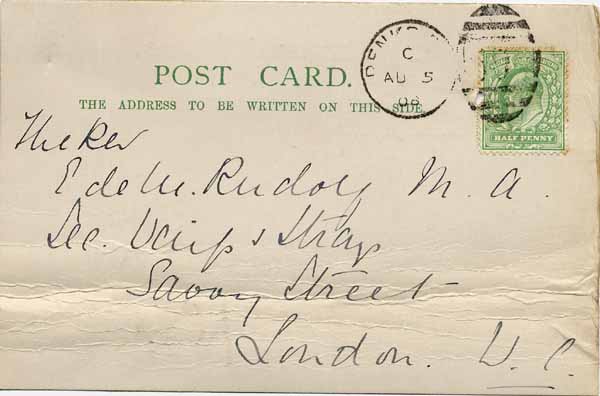 POST CARD.
THE ADDRESS TO BE WRITTEN ON THIS SIDE
C
AU 5
08
HALF PENNY
The Rev
E de M. Rudolf M. A.
Sec. Waifs & Strays
Savoy Street
London. W. C.